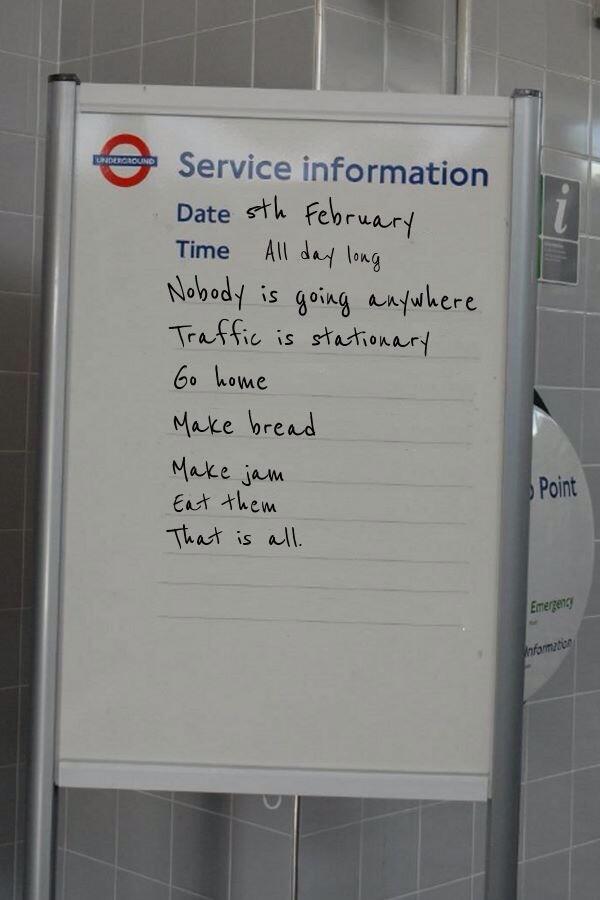 UNDERGROUND
Service information
Date 5th February
Time All day long
Nobody is going anywhere
Traffic is stationary
Go home
Make bread
Make jam
Eat them
That is all.
i
Point
Emergency
Information